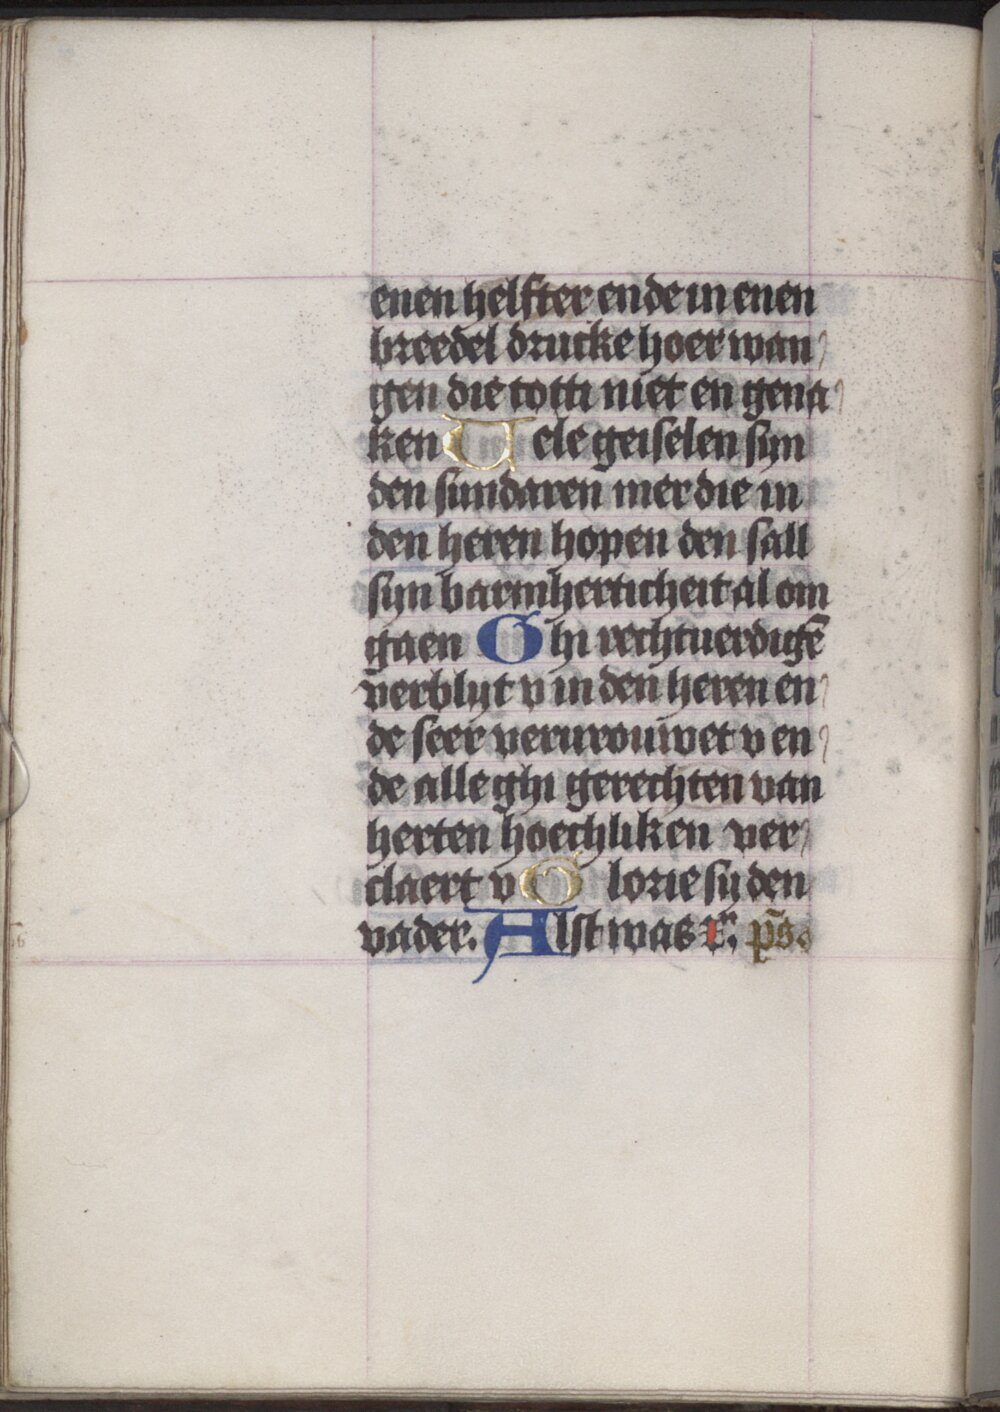 enen helfter ende in enen
breedel drucke hoer wan
gen die totti niet en gena
ken Vele geiselen syn
den sundaren mer die in
den heren hopen den sall
syn barmherticheit al om
gaen Ghi rechtuerdigē
verblijt v in den heren en
de seer vervrouwet v en
de alle ghi gerechten van
herten hoechliken ver
claert v Glorie sy den
vader. Alst was
p̄s